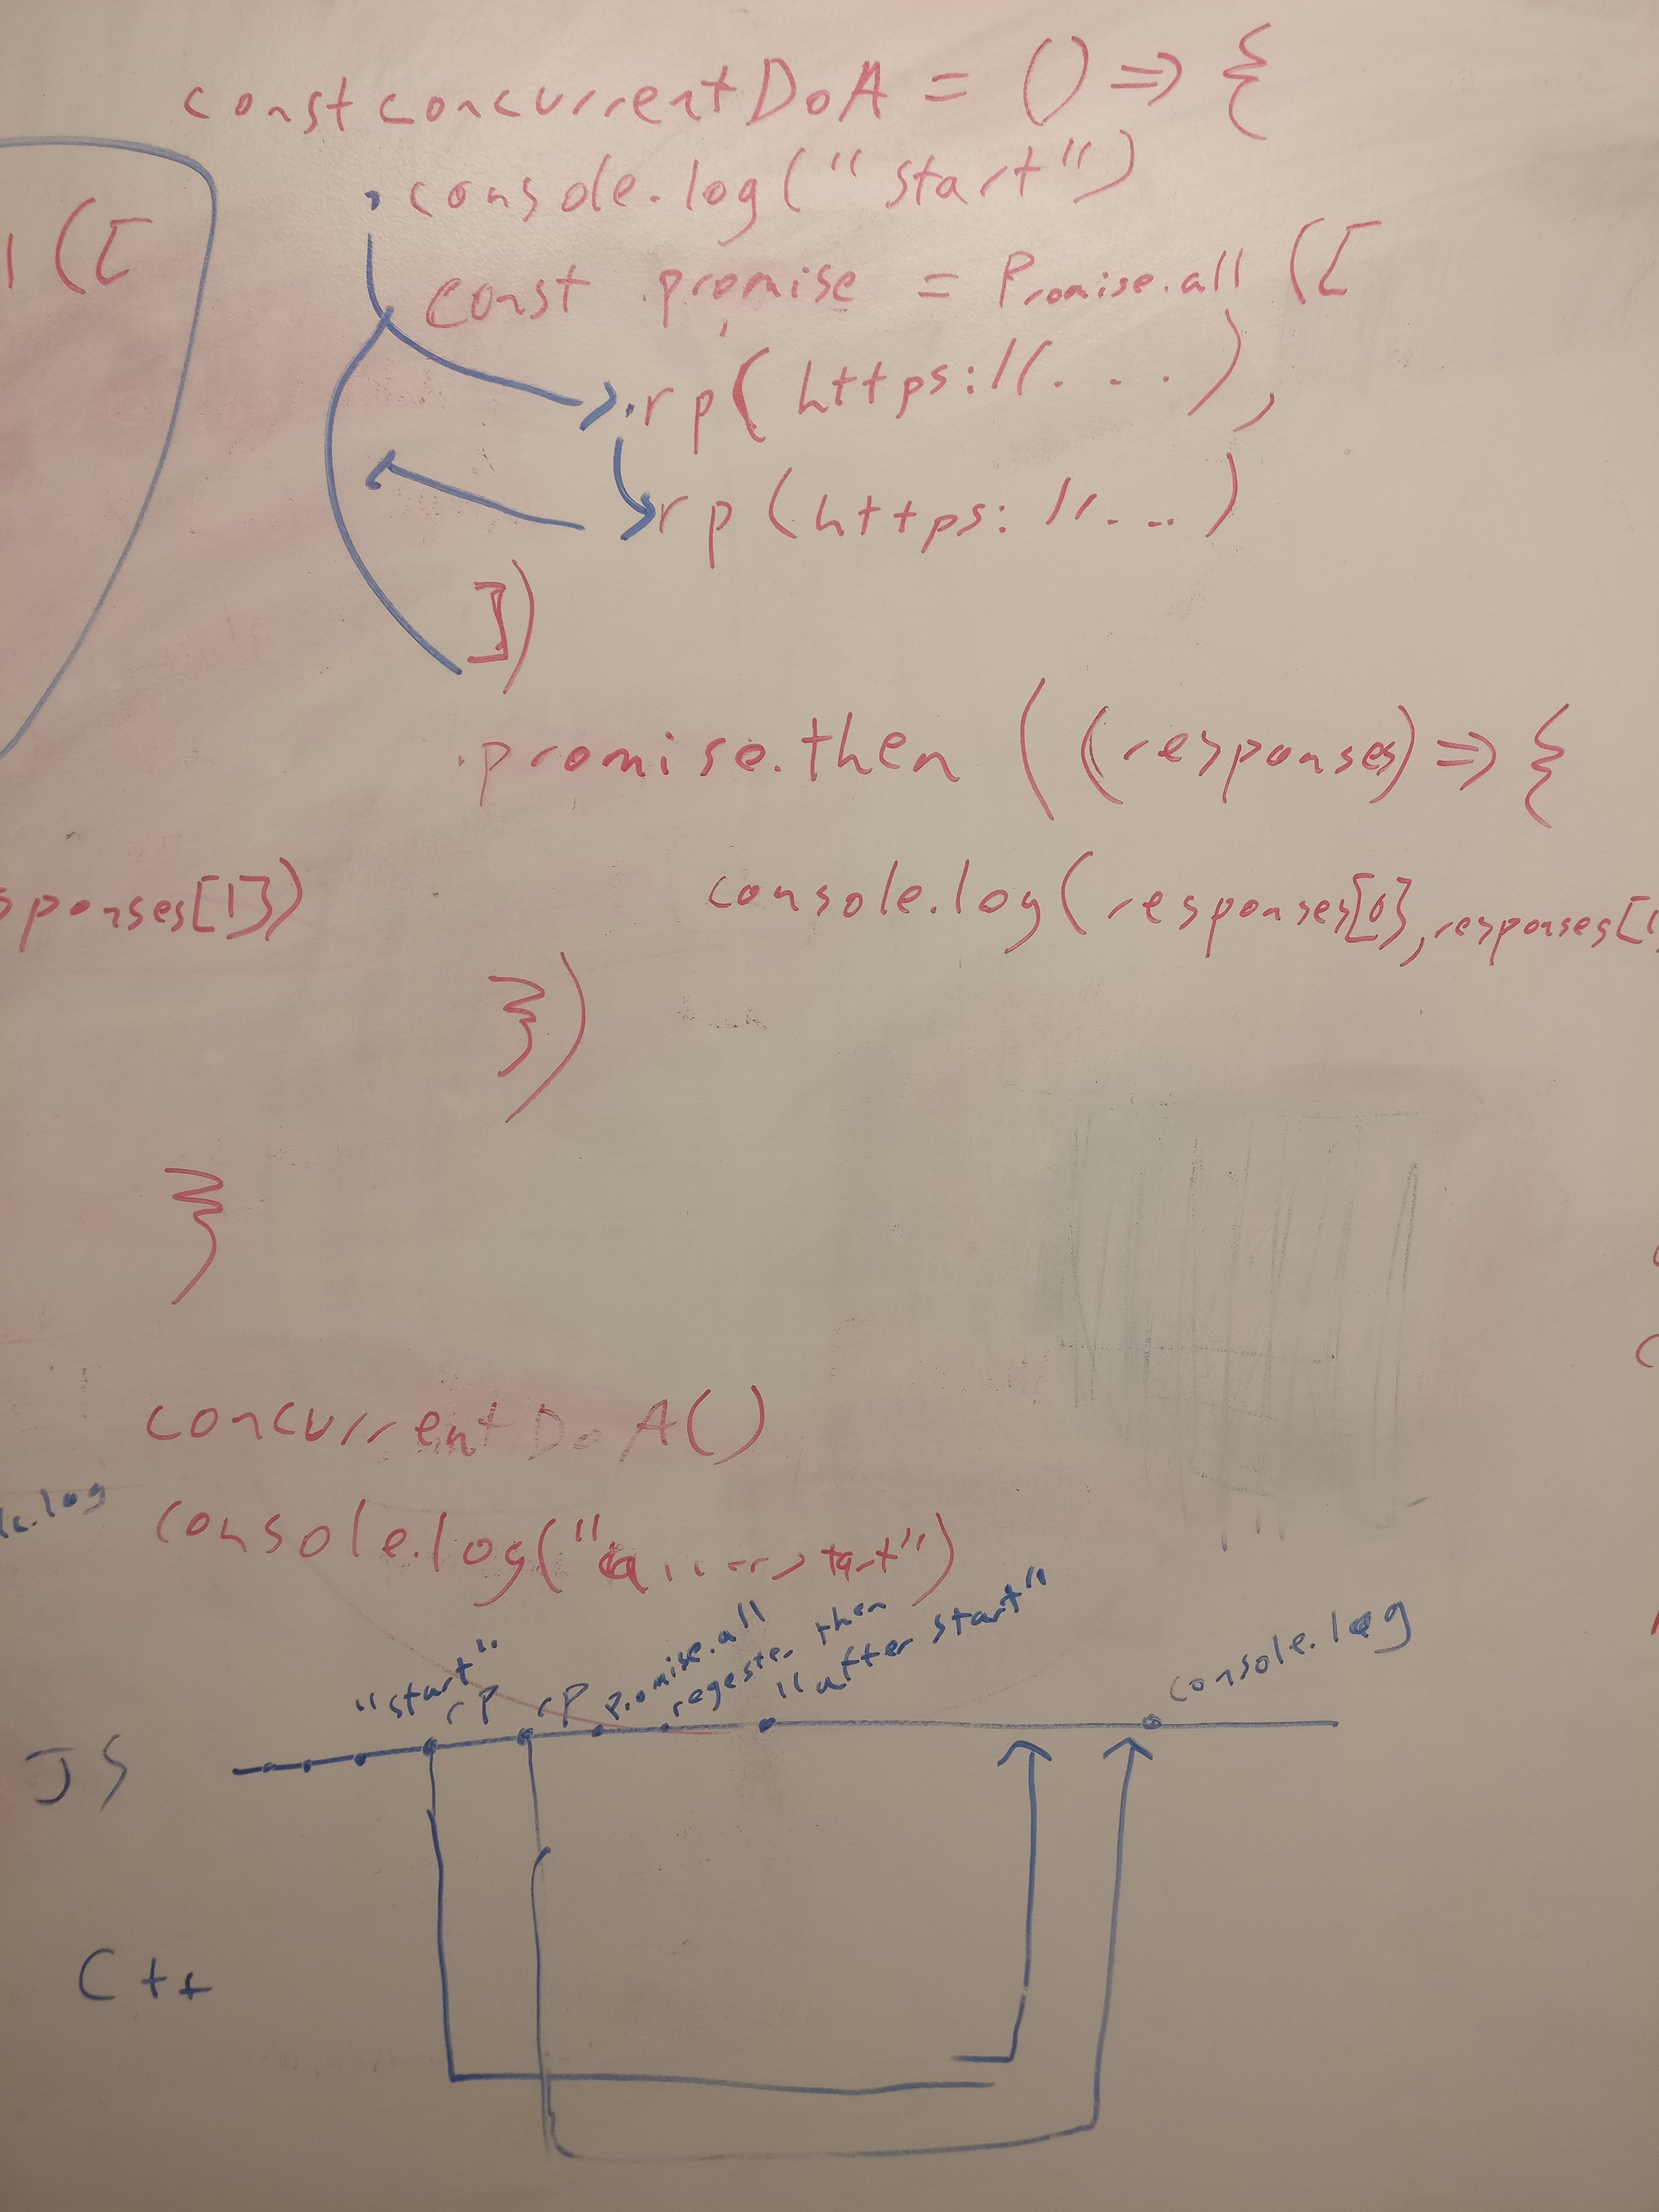 const concurrentDoA = () => {
console.log("start")
1 ([
const promise = Promise.all ([
rp(https://...),
rp(https://...)
])
promise.then ((responses) => {
sponses[1])
console.log(responses[0], responses[1
})
}
concurrentDoA()
.log
console.log("      start")
"start" rp rp promise.all regester then "after start" console.log
JS
C++